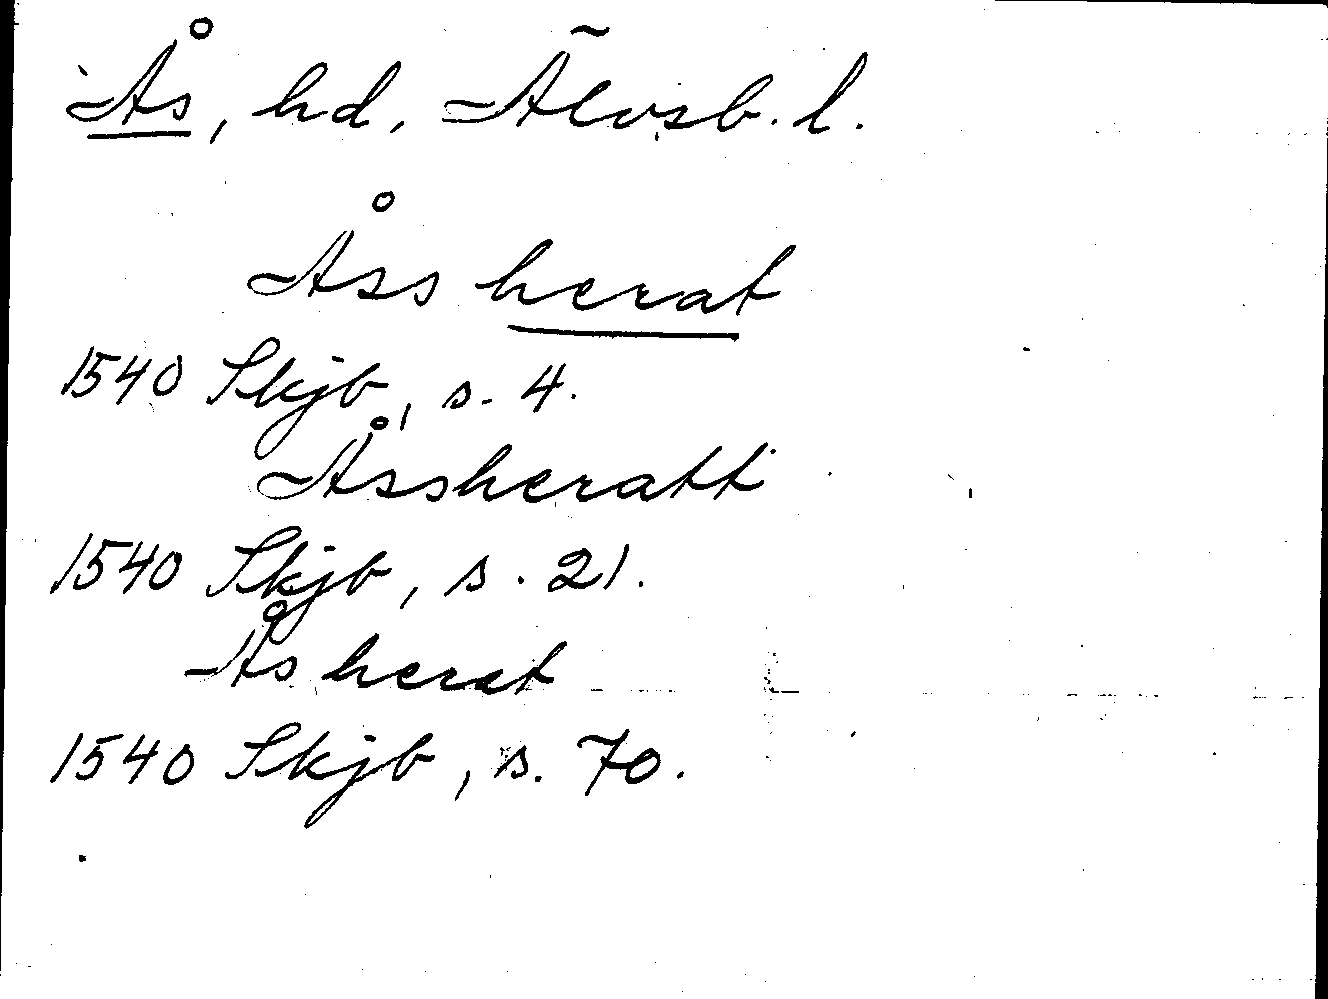 Ås, hd, Älvsb. l.
Åss herat
1540 Skjb, s. 4.
Åssheratt
1540 Skjb, s. 21.
Ås herat
1540 Skjb, s. 70.